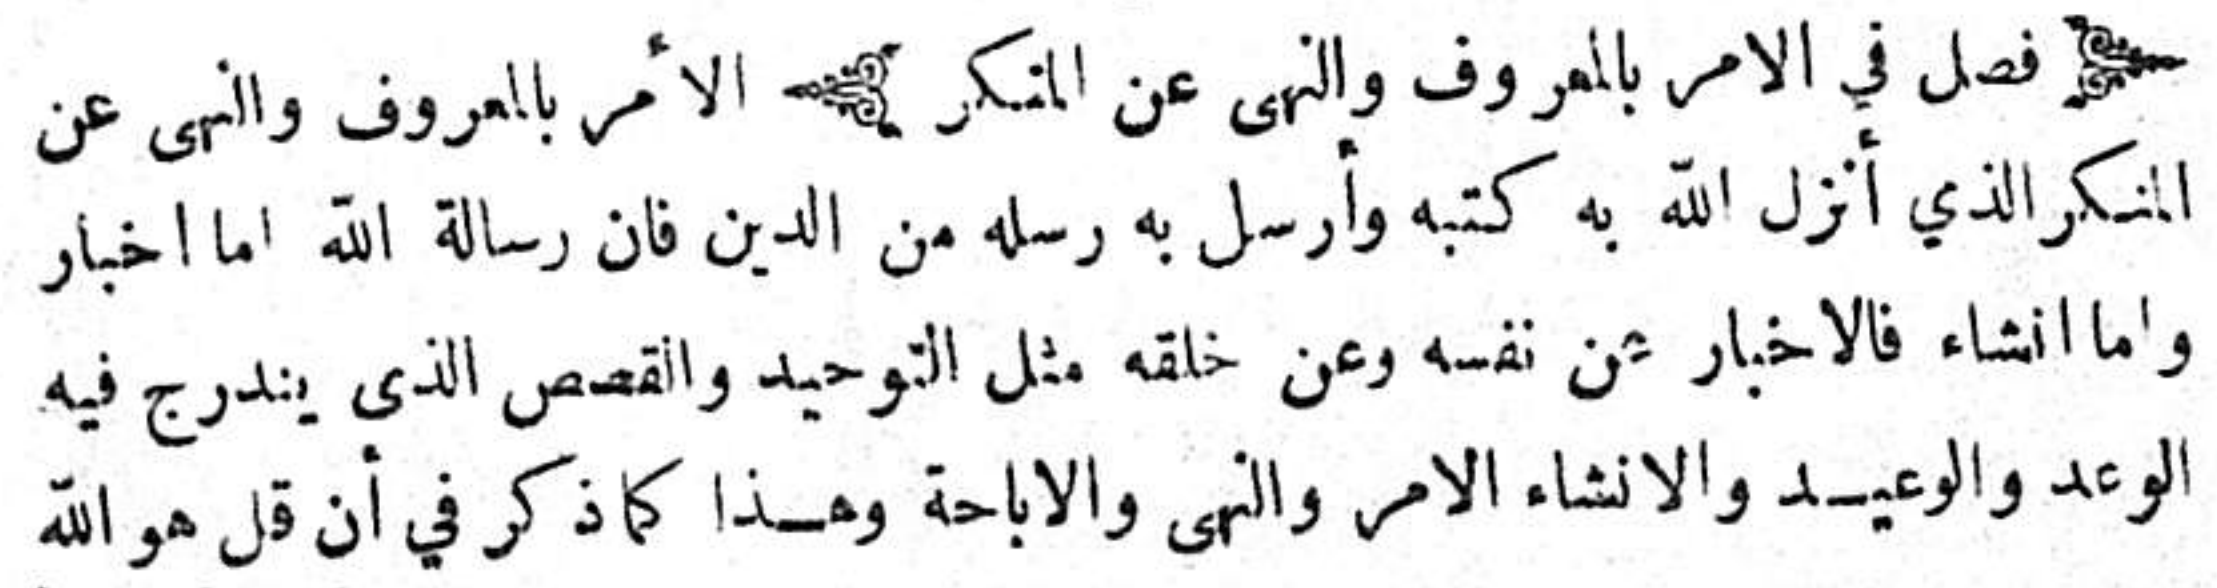 فصل في الامر بالمعروف والنهى عن المنكر الأمر بالمعروف والنهى عن
المنكر الذي أنزل الله به كتبه وأرسل به رسله من الدين فان رسالة الله اما اخبار
واما انشاء فالاخبار عن نفسه وعن خلقه مثل التوحيد والقصص الذى يندرج فيه
الوعد والوعيد والانشاء الامر والنهى والاباحة وهذا كما ذكر في أن قل هو الله